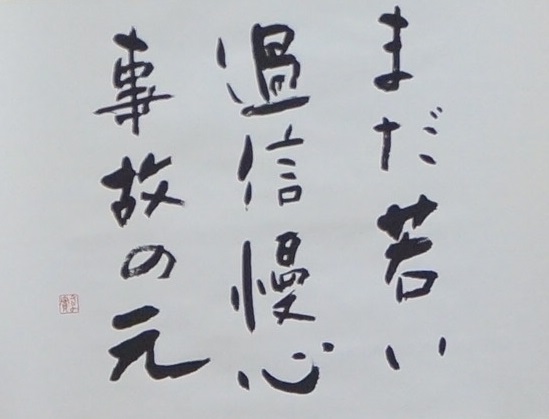 まだ若い
過信慢心
事故の元